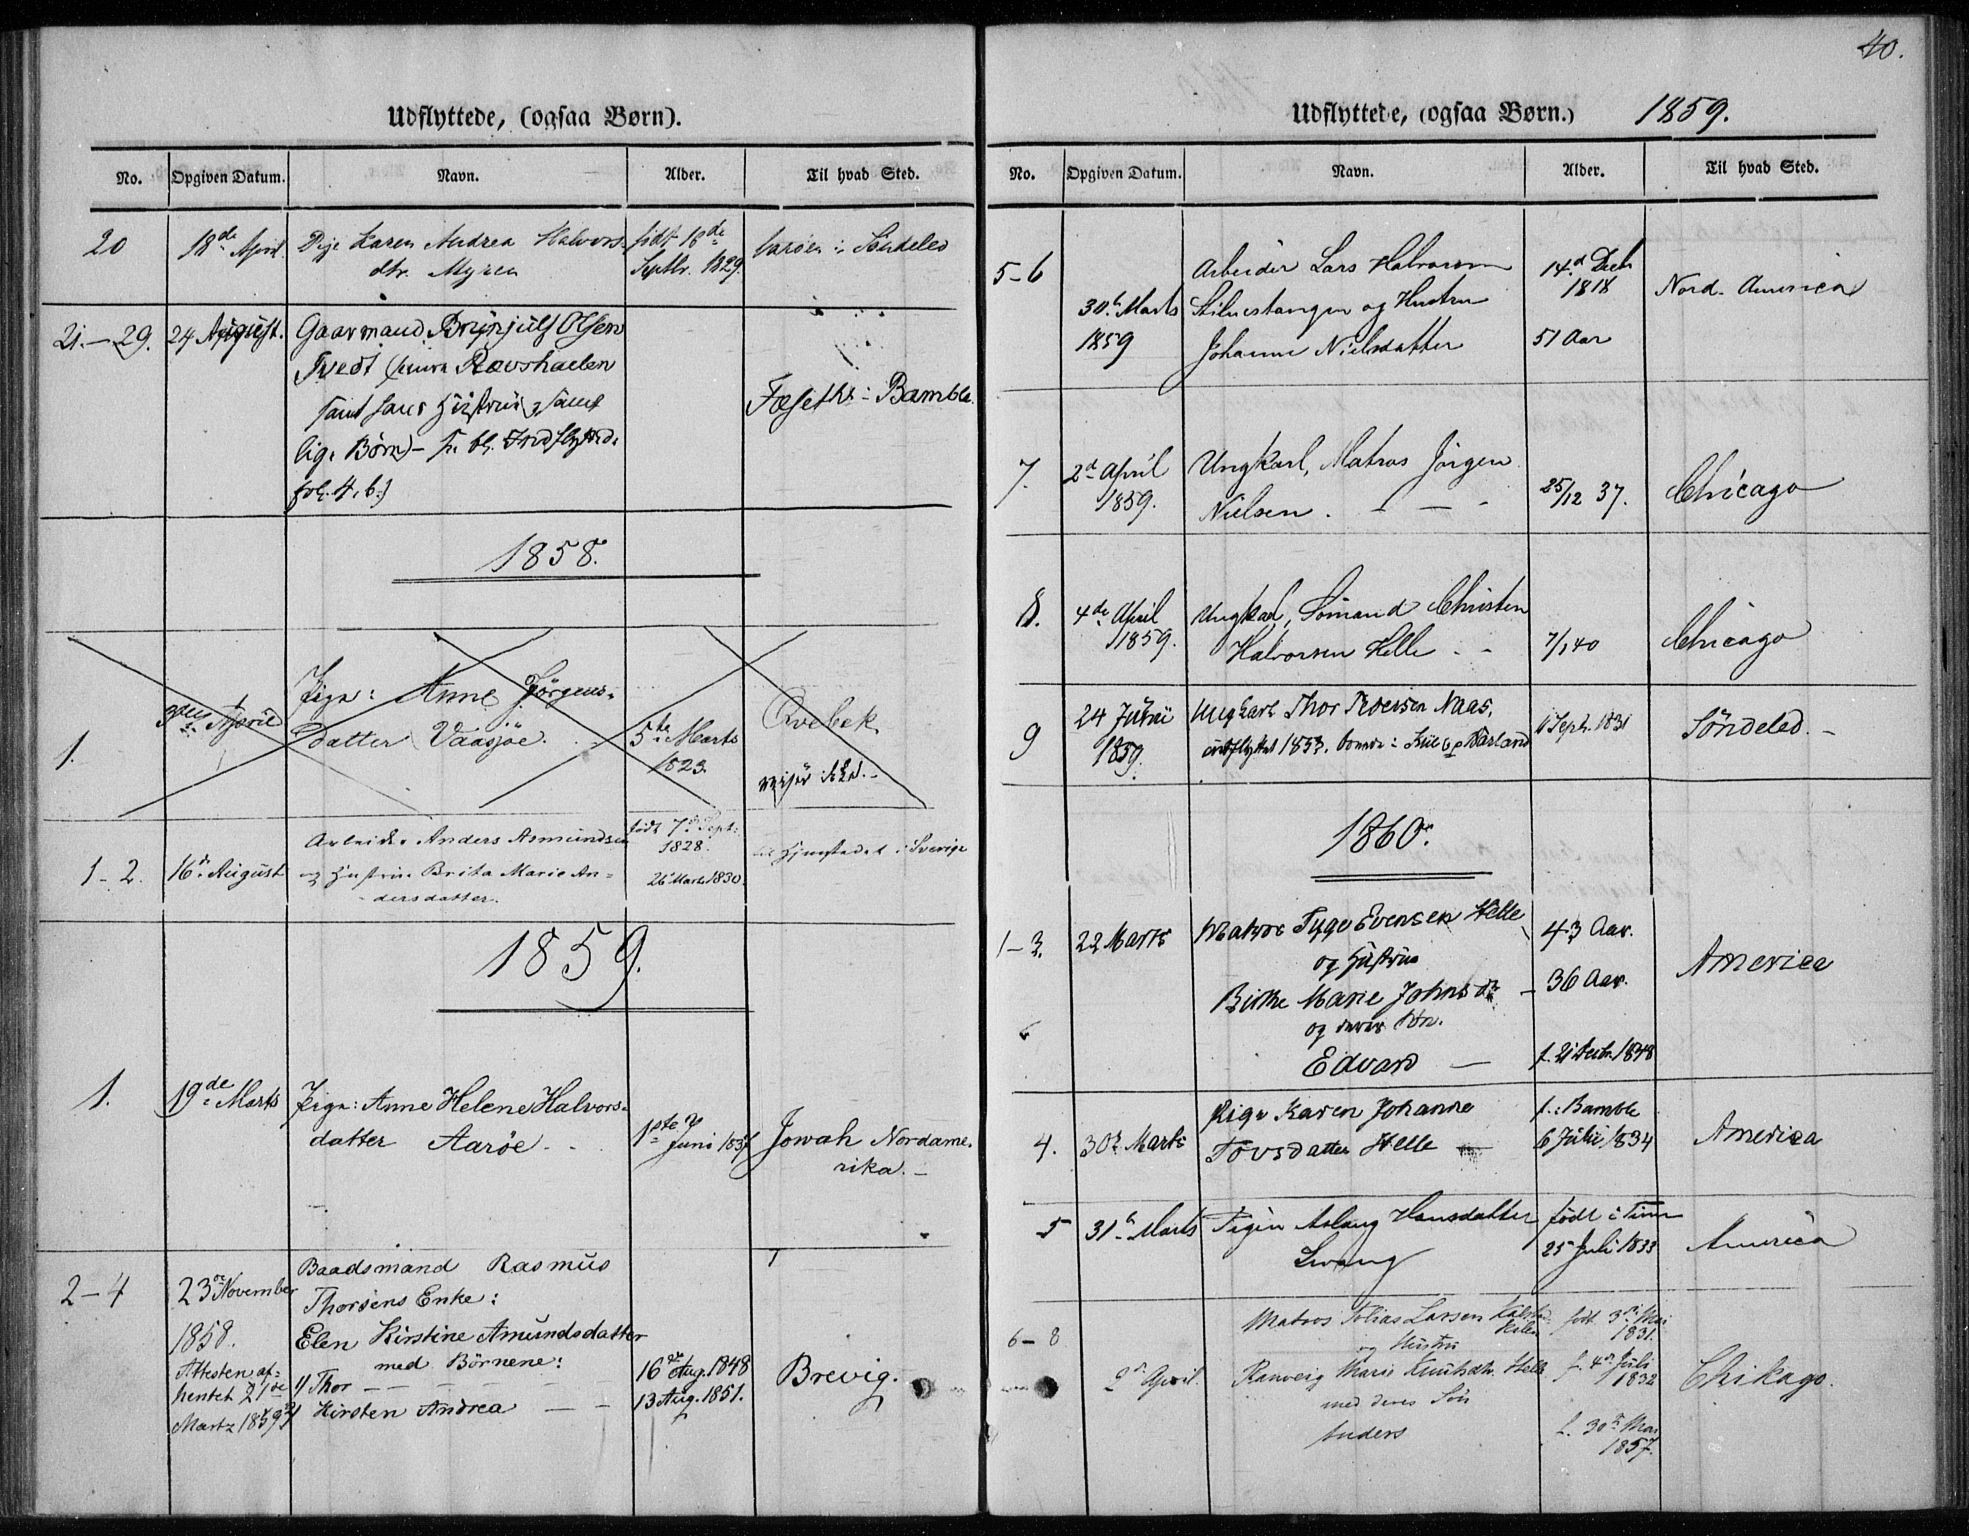 Udflyttede, (ogsaa Børn).
No. Opgiven Datum. Navn. Alder. Til hvad Sted.
20 18de April Pige Karen Andrea Halvors- født 16de Sandøen i Søndeled
dtr. Myren Septbr. 1829.
21.-29. 24 August. Gaarmand Brynjulf Olsen
Tvedt Rævshaelen
samt hans Hustrue, samt
lige Børn - Indflyttede
fol. 4, b.)
Fæseth i Bamble.
1858.
1. April Pige: Anne Jørgens-
datter Vaasjøe.
5te Marts
1823.
Qvebek
reiser ikke.
1-2. 16de August Arbeider Anders Asmundsen
og Hustrue Brita Marie An-
dersdatter.
født 7de Sept:
1828.
26 Marts 1830.
til Hjemstedet i Sverige
1859.
1. 19de Marts Pige: Anne Helene Halvors-
datter Aarøe
1ste Juni 1837
Jowah Nordame-
rika.
2-4 23de November
1858.
Attesten af-
hentet 21de
Martz 1859
Baadsmand Rasmus
Thorsens Enke:
Elen Kirstine Amundsdatter
med Børnene:
1/ Thor 16de Aug. 1848
2/ Kirsten Andrea 13 Aug. 1851.
Brevig.
40.
Udflyttede, (ogsaa Børn.) 1859.
No. Opgiven Datum. Navn. Alder. Til hvad Sted.
5-6 30te Marts
1859
Arbeider Lars Halvorsen
Stilnestangen og Hustru
Johanne Nielsdatter
14de Decbr
1818
51 Aar
Nord-America
7. 2de April
1859.
Ungkarl, Matros Jørgen
Nielsen.
25/12 37. Chicago
8. 4de April
1859.
Ungkarl, Sømand Christen
Halvorsen Helle
7/1 40 Chicago
9 24 Juni
1859.
Ungkarl Thor Pedersen Naas,
indflyttet 1853.
11 Sept. 1831 Søndeled.
1860.
1-3. 22 Marts Matros Tyge Evensen Helle
og Hustrue
Birthe Marie Johnsdtr
og deres Søn.
Edvard
43 Aar.
36 Aar.
f. 21 Decbr. 1848
America
4. 30te Marts Pige Karen Johanne
Tovsdatter Helle
f. i Bamble
6 Julii 1834
America
5 31te Marts Pigen Aslaug Hansdatter
Levang
født i Tinn
25 Juli 1833
America
6-8 2de April. Matros Tobias Larsen
og Hustru
Ranveig Marie Knutsdtr. Helle
med deres Søn
Anders
født 3de Mai
1831.
f. 4de Juli
1832
f. 30te Mai
1857.
Chikago.